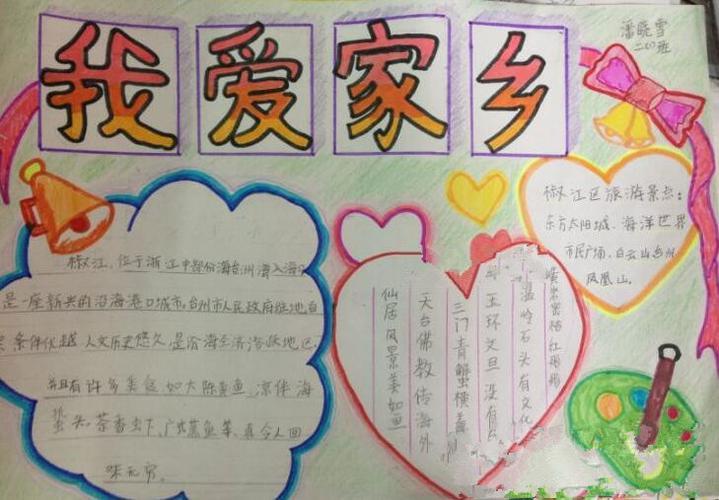 我爱家乡
潘晓雪
二(1)班
椒江,位于浙江中部沿海台州湾入海口
是一座新兴的沿海港口城市,台州市人民政府驻地,自
条件优越,人文历史悠久,是沿海经济活跃地区。
并且有许多美食,如大陈黄鱼、凉伴海
蜇头、茶香虾、等,真令人回
味无穷。
椒江区旅游景点:
东方太阳城、海洋世界
市民广场、白云山台州
凤凰山。
蜜桔红彤彤
温岭石头有文化
玉环文旦没有
三门青蟹横着
天台佛教传海外
仙居风景美如画